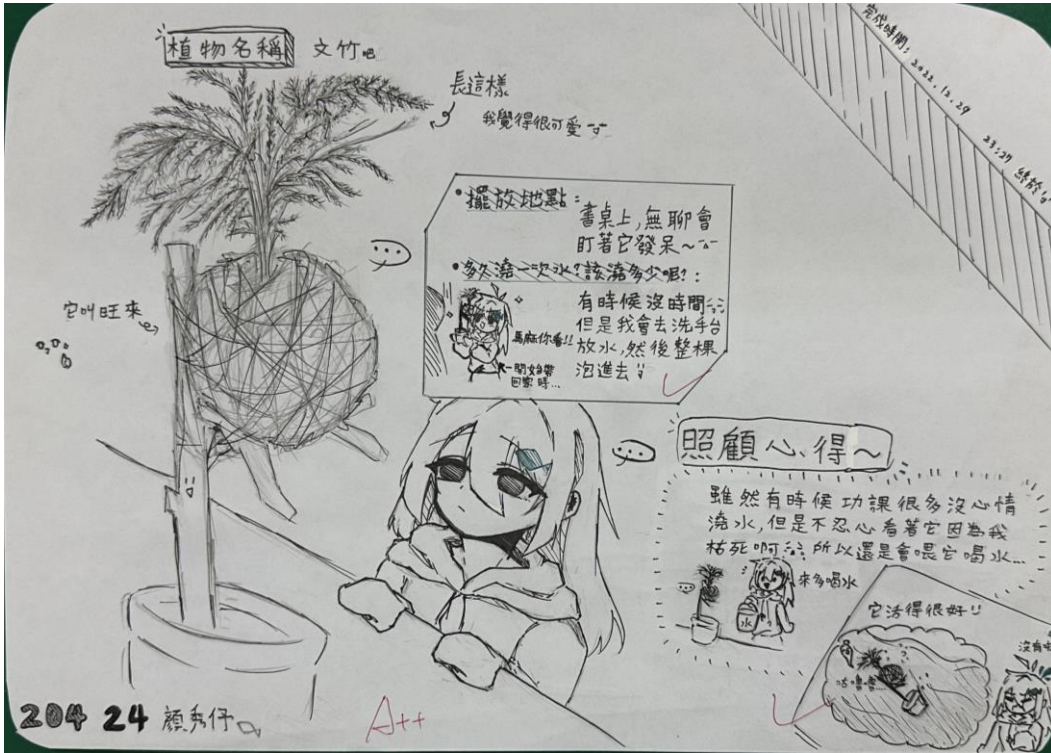 植物名稱 文竹吧
長這樣
我覺得很可愛
完成時間：2022.12.29
23:27 終於
•擺放地點：
書桌上，無聊會
盯著它發呆～
•多久澆一次水？該澆多少呢？：
有時候沒時間
但是我會去洗手台
放水，然後整棵
泡進去
馬麻你看!!
帶
回家時...
它叫旺來
照顧心得～
雖然有時候功課很多沒心情
澆水，但是不忍心看著它因為我
枯死啊 所以還是會喂它喝水...
來多喝水
水
它活得很好
咕嚕嚕...
沒有
204 24 顏秀伃
A++